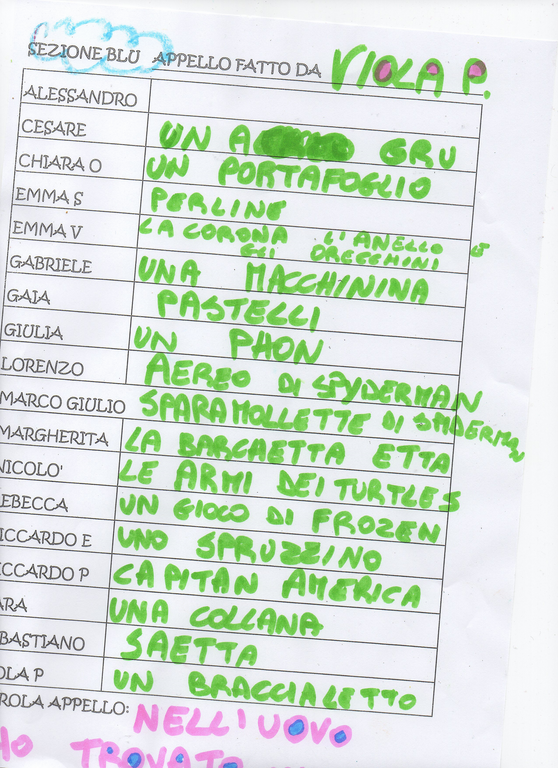 SEZIONE BLU APPELLO FATTO DA VIOLA P.
ALESSANDRO
CESARE UN GRU
CHIARA O UN PORTAFOGLIO
EMMA S PERLINE
EMMA V LA CORONA L'ANELLO E
GLI ORECCHINI
GABRIELE UNA MACCHININA
GAIA PASTELLI
GIULIA UN PHON
LORENZO AEREO DI SPYDERMAN
MARCO GIULIO SPARAMOLLETTE DI
MARGHERITA LA BARCHETTA ETTA
NICOLO' LE ARMI DEI TURTLES
EBECCA UN GIOCO DI FROZEN
ICCARDO E UNO SPRUZZINO
ICCARDO P CAPITAN AMERICA
ARA UNA COLLANA
BASTIANO SAETTA
OLA P UN BRACCIALETTO
ROLA APPELLO: NELL'UOVO
HO TROVATO